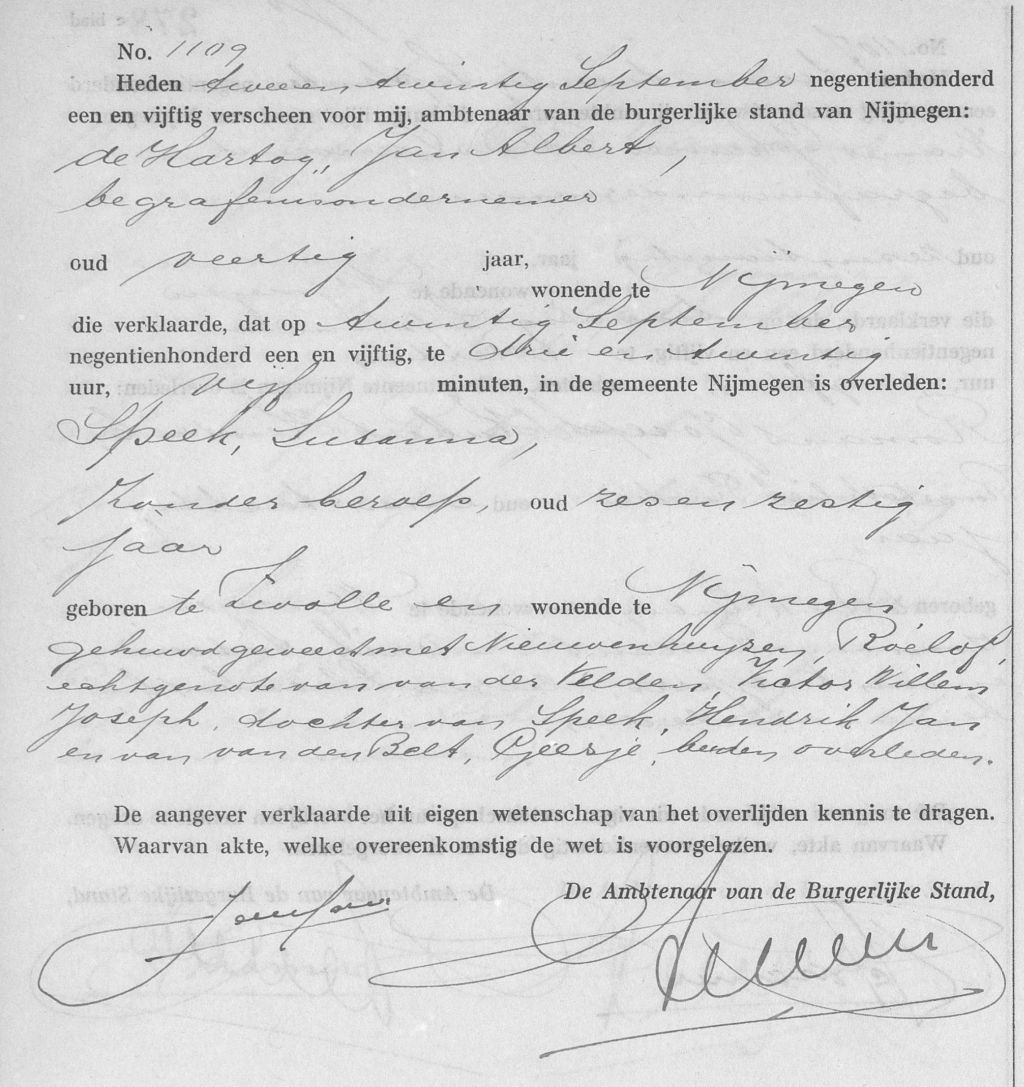 No. 1109
Heden tweeen twintig September negentienhonderd
een en vijftig verscheen voor mij, ambtenaar van de burgerlijke stand van Nijmegen:
de Hartog, Jan Albert,
begrafenisondernemer
oud veertig jaar,
wonende te Nijmegen
die verklaarde, dat op twintig September
negentienhonderd een en vijftig, te drie en twintig
uur, vijf minuten, in de gemeente Nijmegen is overleden:
Speek, Susanna,
zonder beroep, oud zes en zestig
jaar
geboren te Zwolle en wonende te Nijmegen
gehuwd geweest met Nieuwenhuyzen, Roelof,
echtgenote van van der Velden, Victor Willem
Joseph, dochter van Speek, Hendrik Jan
en van van den Belt, Geesje, beiden overleden.
De aangever verklaarde uit eigen wetenschap van het overlijden kennis te dragen.
Waarvan akte, welke overeenkomstig de wet is voorgelezen.
De Ambtenaar van de Burgerlijke Stand,